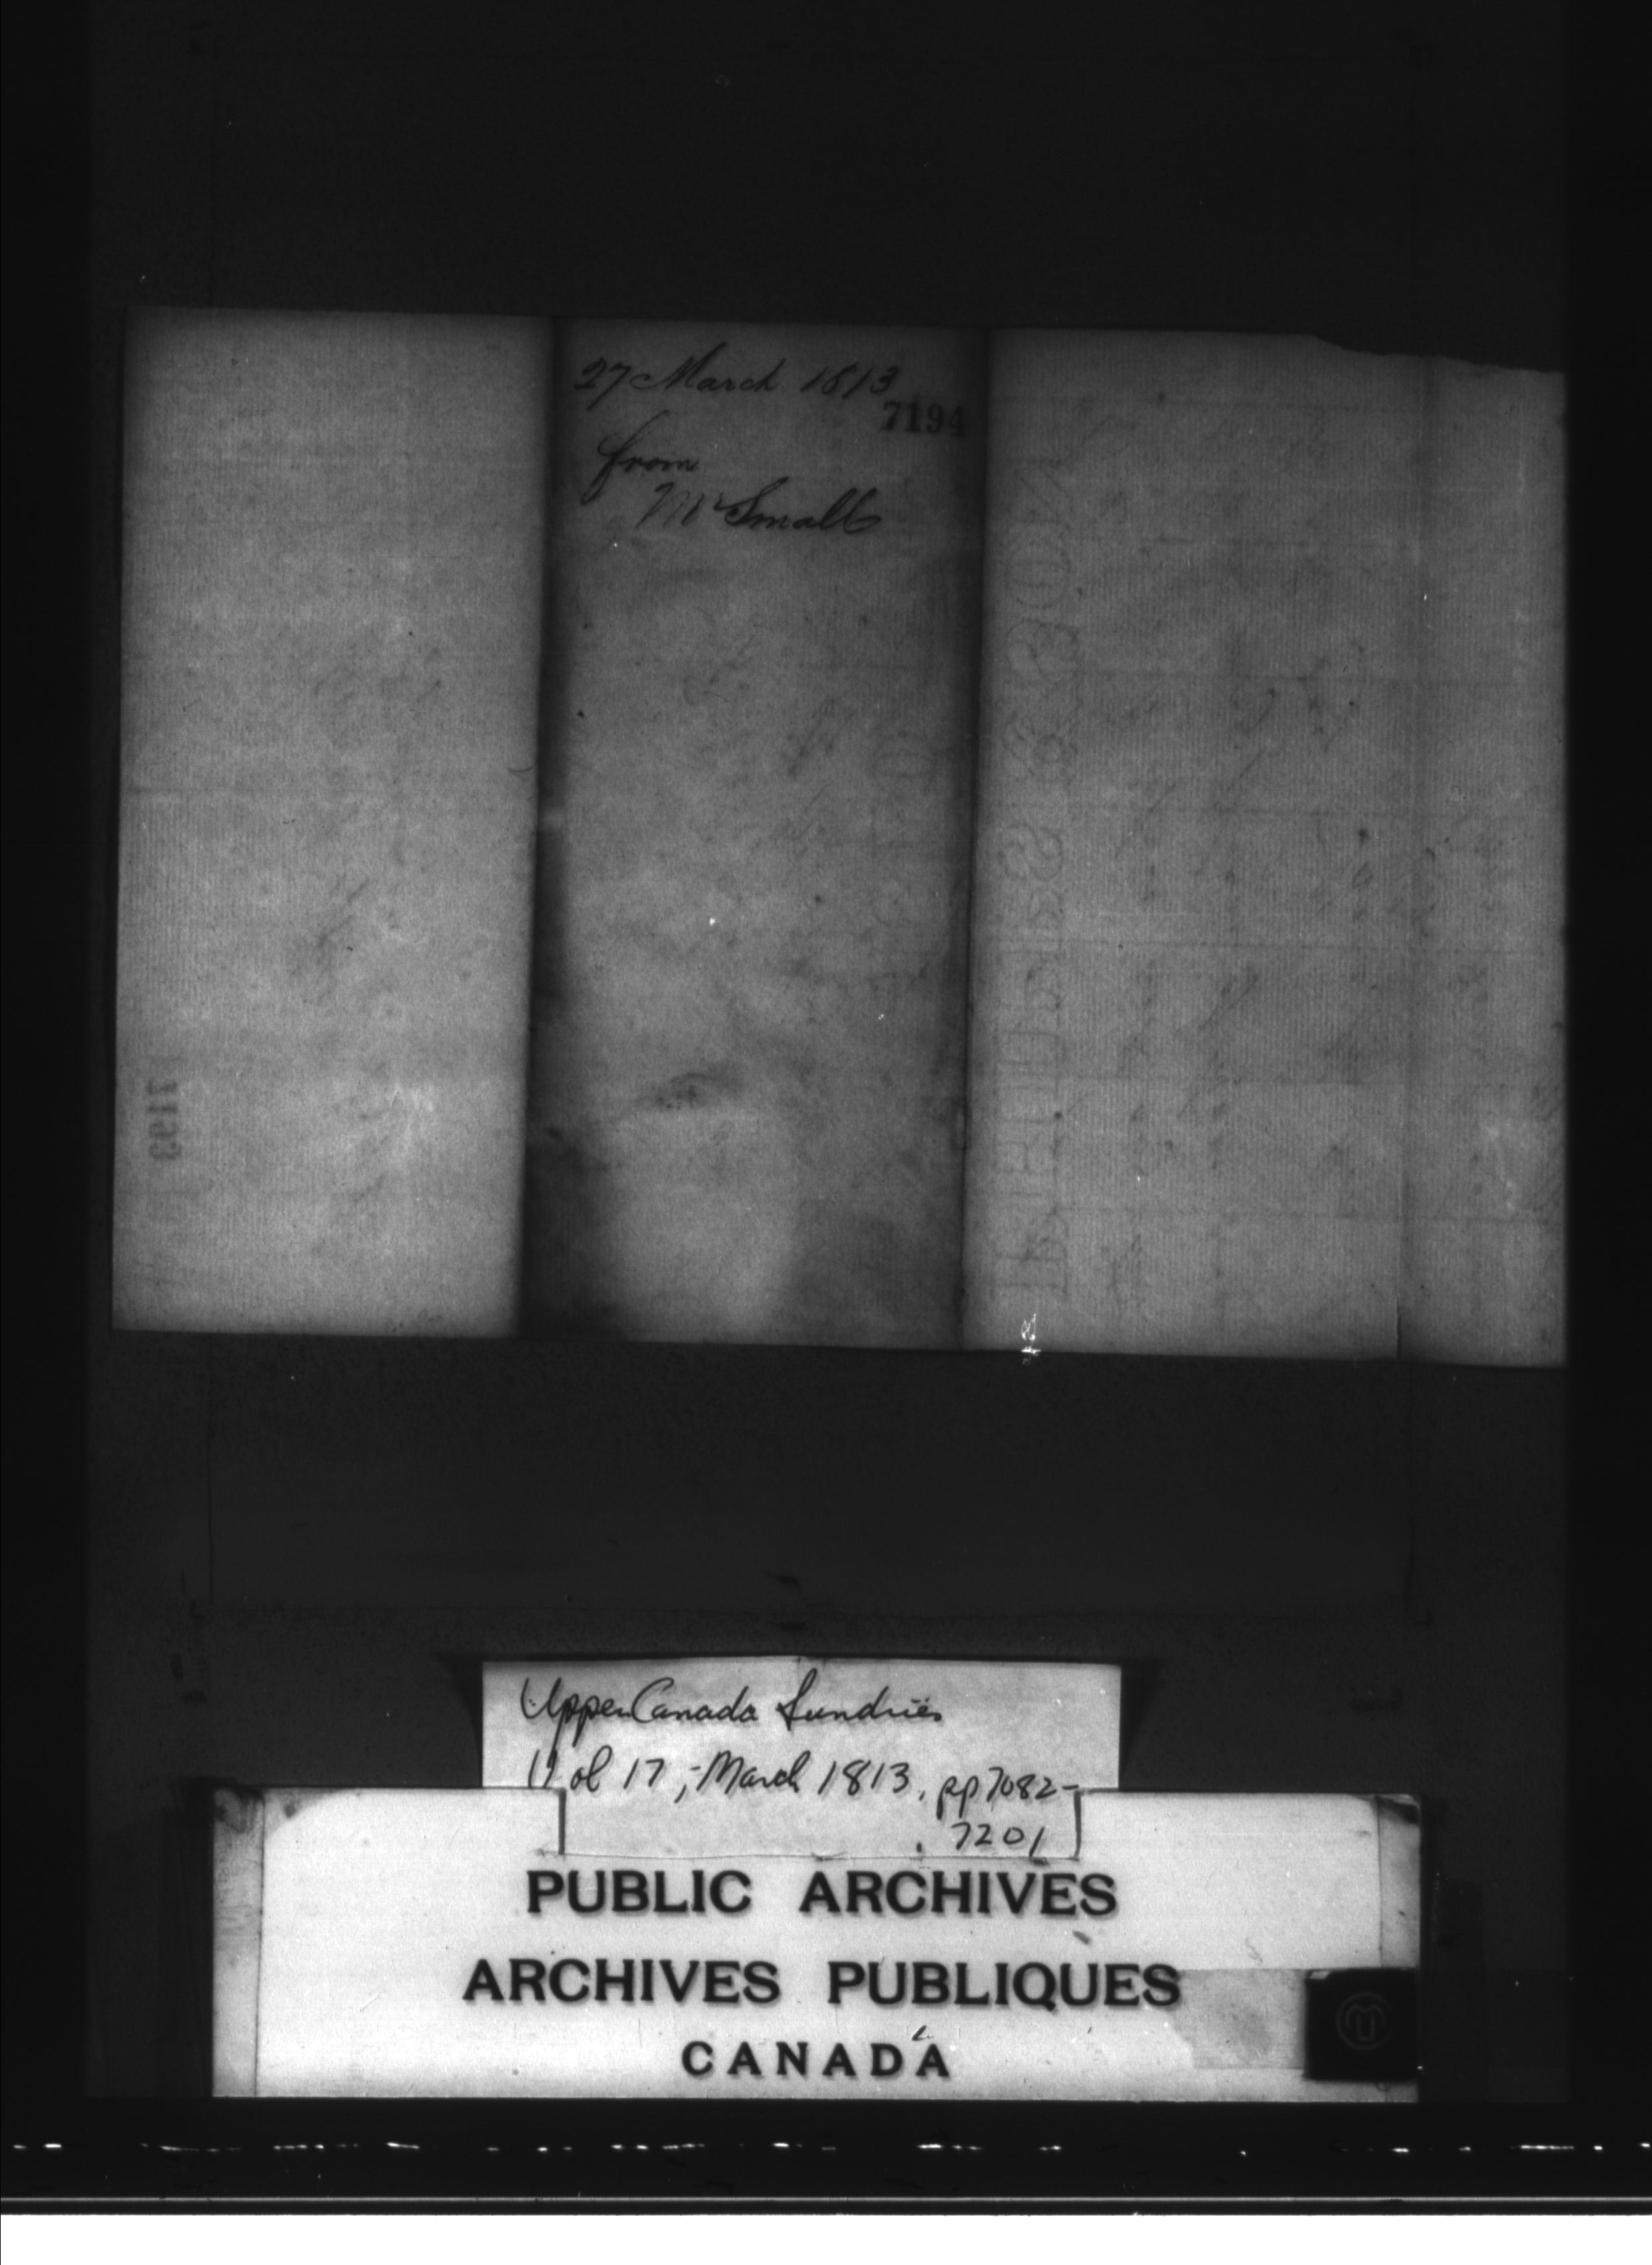 27 March 1813
7194
from
Mr Small
7193
Upper Canada Sundries
Vol 17, March 1813, pp 7082-
7201
PUBLIC ARCHIVES
ARCHIVES PUBLIQUES
CANADA